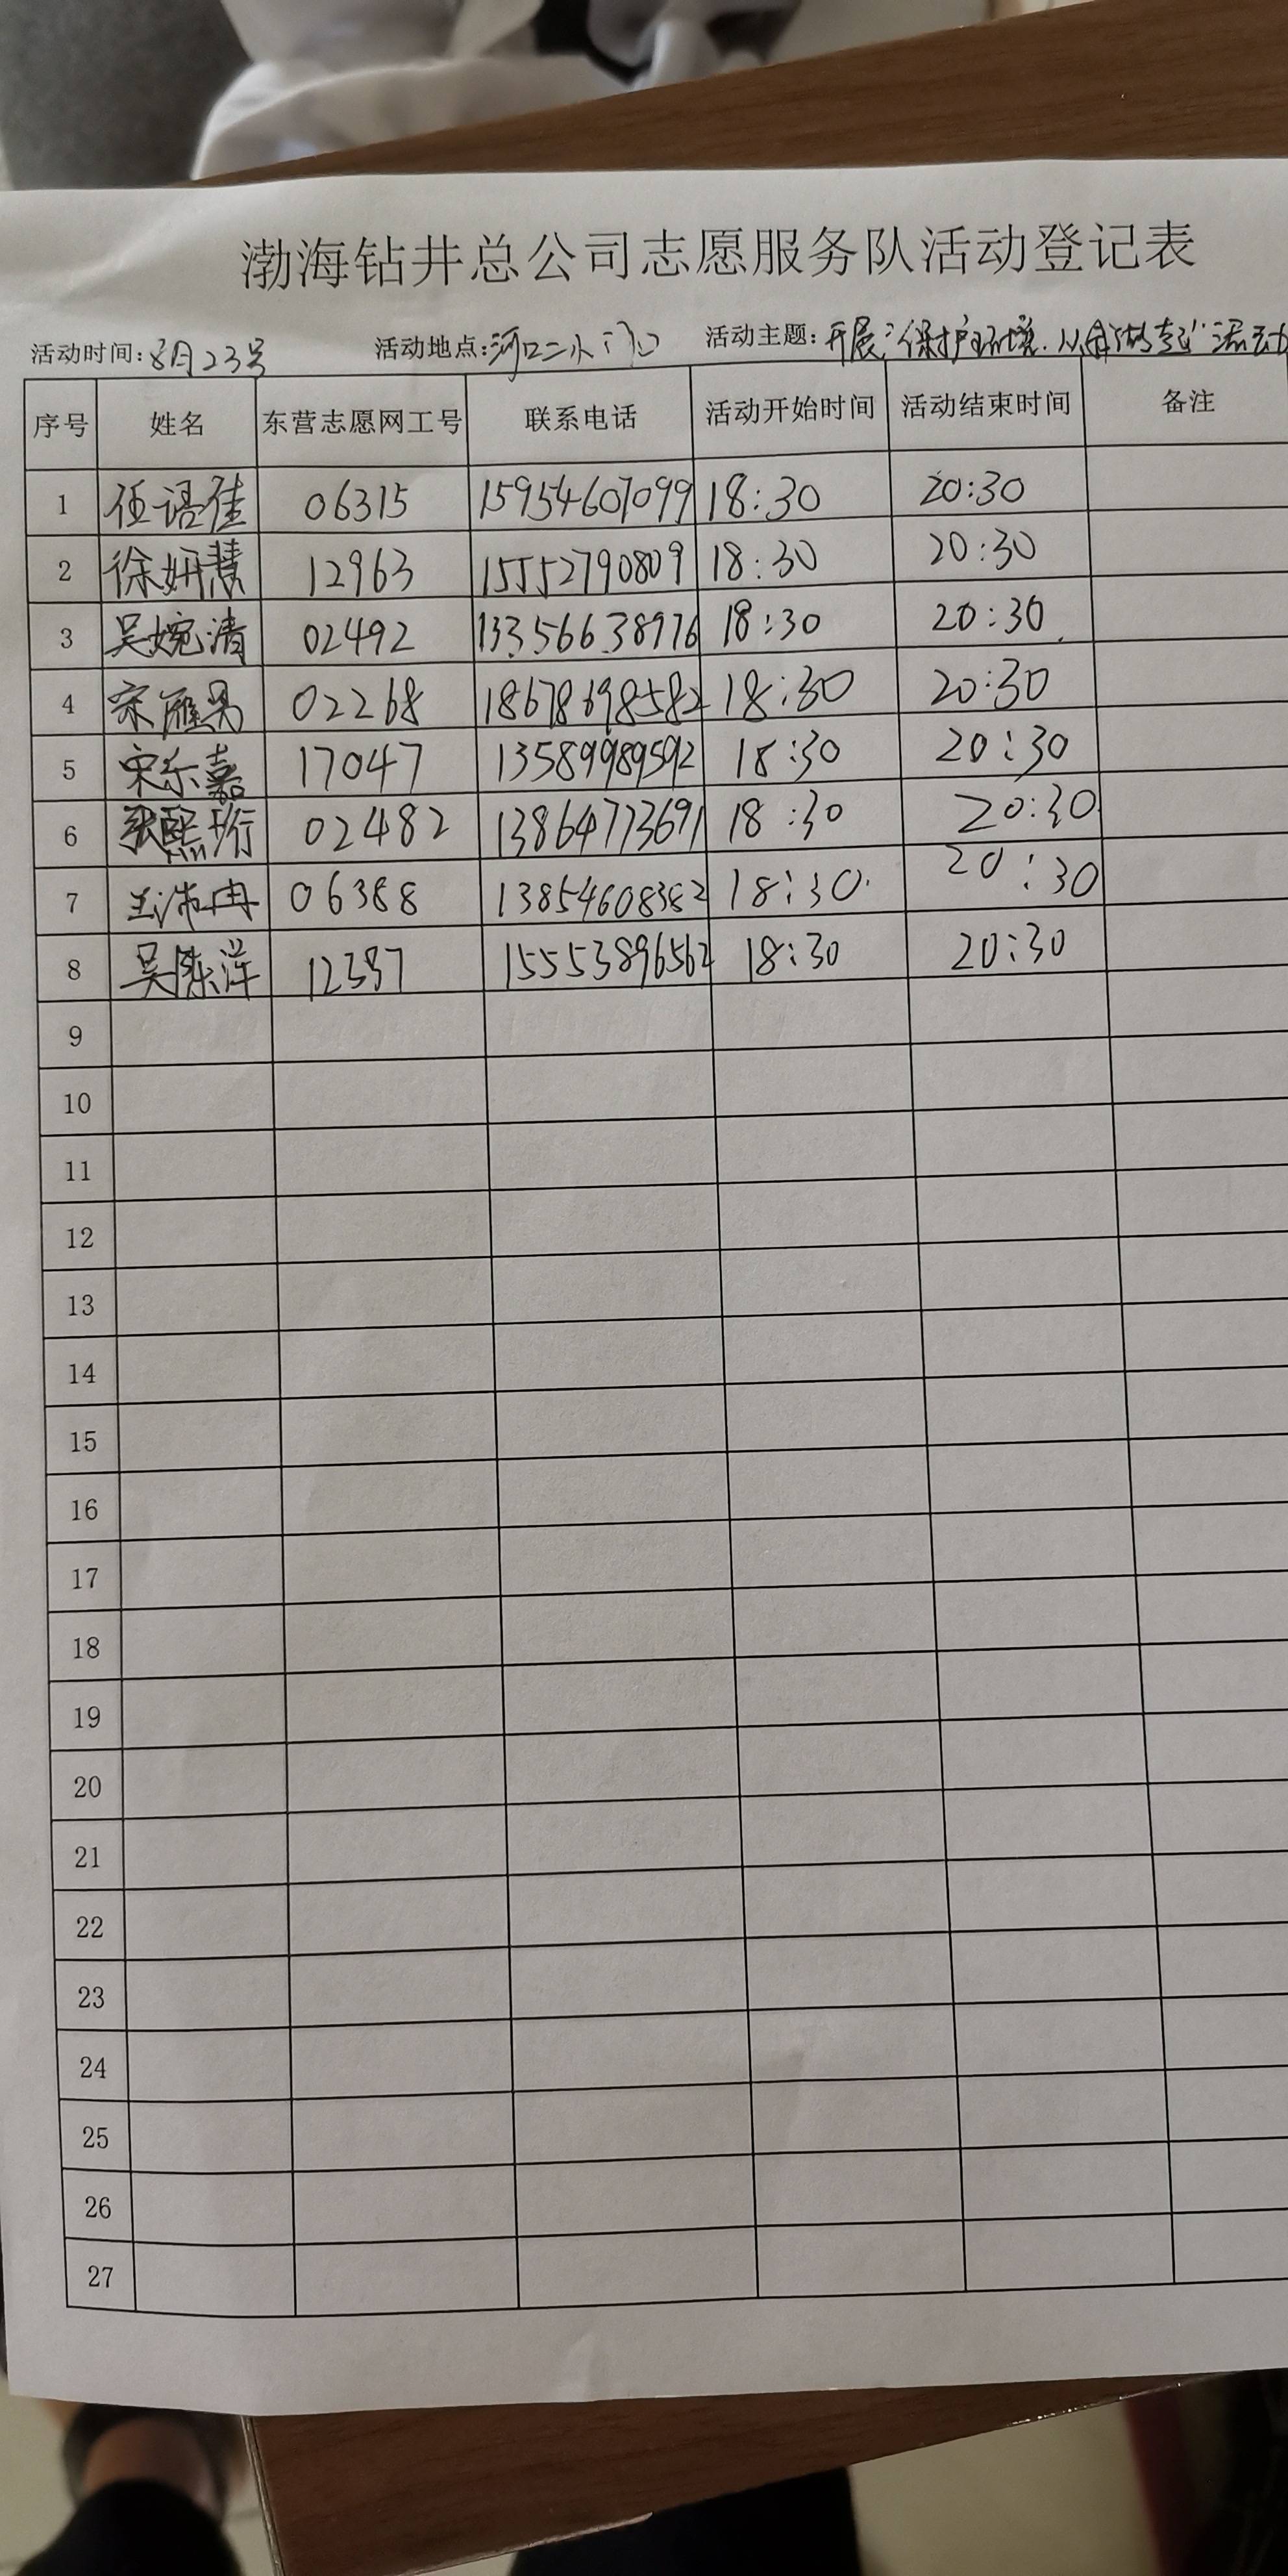 渤海钻井总公司志愿服务队活动登记表
活动时间:8月23号 活动地点:河口二小门口 活动主题:开展“保护环境.从我做起”活动
序号 姓名 东营志愿网工号 联系电话 活动开始时间 活动结束时间 备注
1 伍语佳 06315 15954607099 18:30 20:30
2 徐妍慧 12963 15552790809 18:30 20:30
3 吴婉清 02492 13356638976 18:30 20:30
4 宋雁男 02268 18678698582 18:30 20:30
5 宋乐嘉 17047 13589989592 18:30 20:30
6 张熙珩 02482 13864773691 18:30 20:30
7 06388 13854608382 18:30 20:30
8 吴陈洋 12387 15553896562 18:30 20:30
9
10
11
12
13
14
15
16
17
18
19
20
21
22
23
24
25
26
27